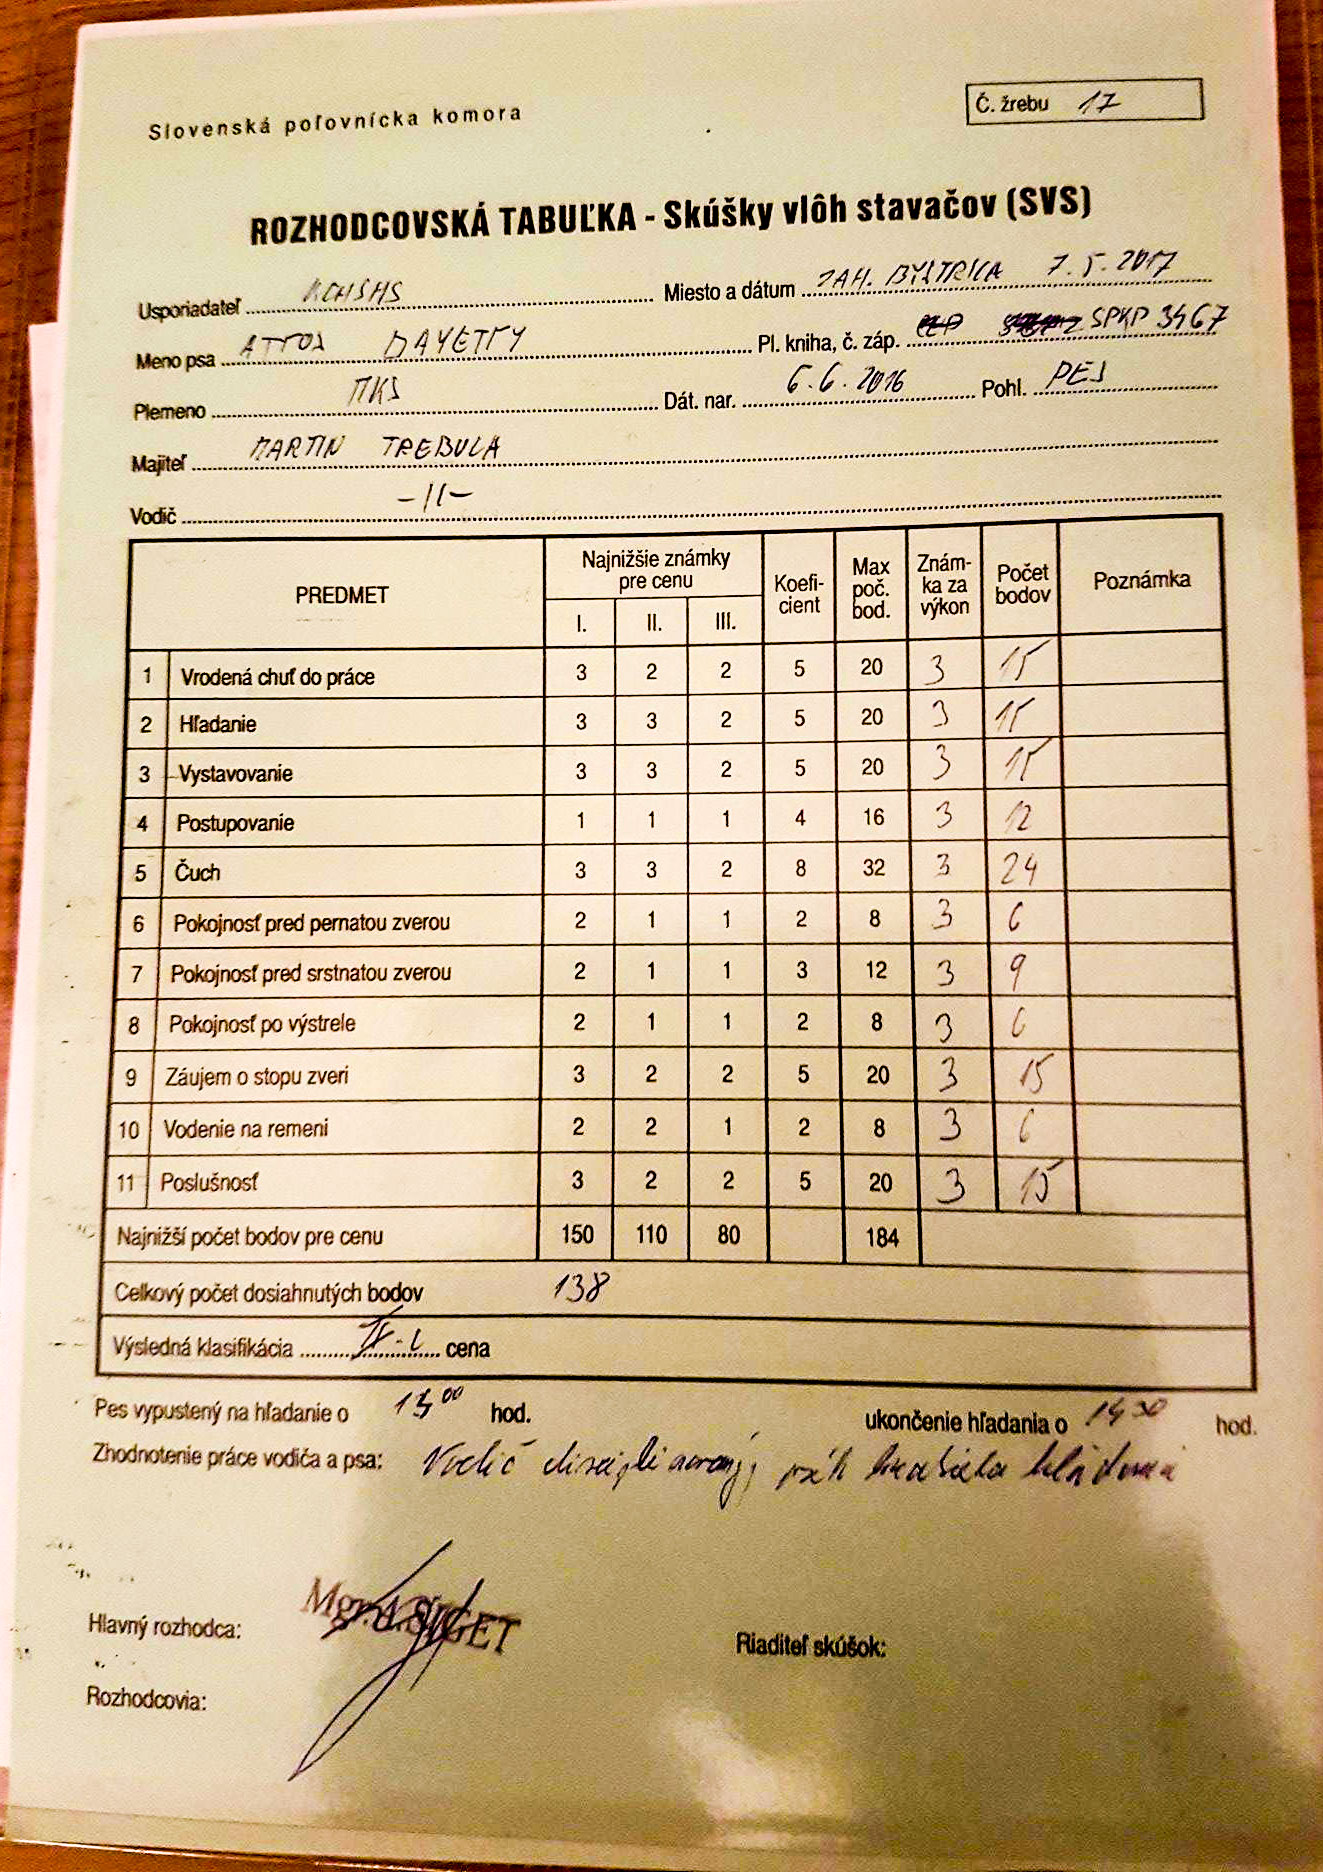 Slovenská poľovnícka komora
Č. žrebu 17
ROZHODCOVSKÁ TABUĽKA - Skúšky vlôh stavačov (SVS)
Usporiadateľ KCHSHS Miesto a dátum ZAH. BYSTRICA 7.5.2017
Meno psa Pl. kniha, č. záp. SPKP 3467
Plemeno MKS Dát. nar. 6.6.2016 Pohl. PES
Majiteľ MARTIN TREBULA
Vodič -II-
PREDMET Najnižšie známky pre cenu I. II. III. Koeficient Max poč. bod. Známka za výkon Počet bodov Poznámka
1 Vrodená chuť do práce 3 2 2 5 20 3 15
2 Hľadanie 3 3 2 5 20 3 15
3 Vystavovanie 3 3 2 5 20 3 15
4 Postupovanie 1 1 1 4 16 3 12
5 Čuch 3 3 2 8 32 3 24
6 Pokojnosť pred pernatou zverou 2 1 1 2 8 3 6
7 Pokojnosť pred srstnatou zverou 2 1 1 3 12 3 9
8 Pokojnosť po výstrele 2 1 1 2 8 3 6
9 Záujem o stopu zveri 3 2 2 5 20 3 15
10 Vodenie na remeni 2 2 1 2 8 3 6
11 Poslušnosť 3 2 2 5 20 3 15
Najnižší počet bodov pre cenu 150 110 80 184
Celkový počet dosiahnutých bodov 138
Výsledná klasifikácia cena
Pes vypustený na hľadanie o hod. ukončenie hľadania o 14 30 hod.
Zhodnotenie práce vodiča a psa: Vodič disciplinovaný,
Hlavný rozhodca: Mgr. J. SIGET Riaditeľ skúšok:
Rozhodcovia: